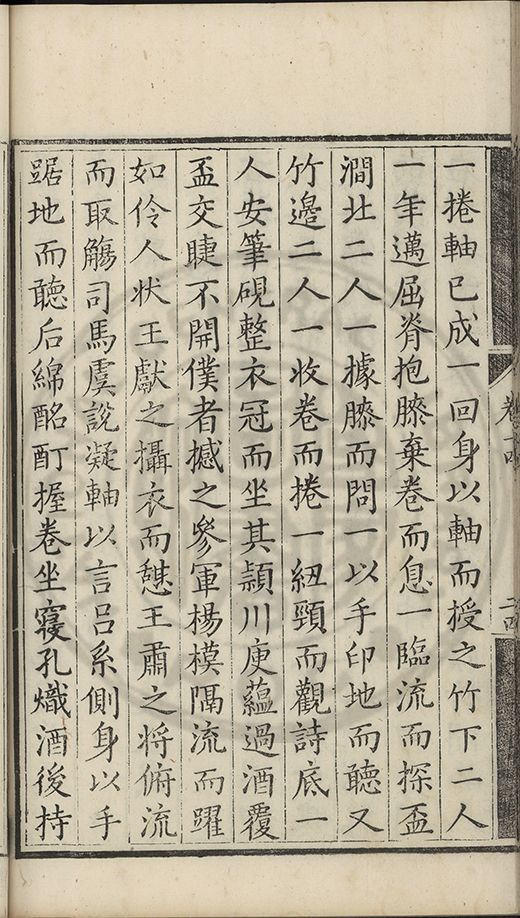 一捲軸已成一回身以軸而授之竹下二人
一年邁屈脊抱膝棄卷而息一臨流而探盃
澗北二人一據膝而問一以手印地而聽又
竹邊二人一收卷而捲一紐頸而觀詩底一
人安筆硯整衣冠而坐其潁川庾藴過酒覆
盃交睫不開僕者撼之參軍楊模隔流而躍
如伶人狀王獻之攝衣而憇王肅之将俯流
而取觴司馬虞說凝軸以言呂系側身以手
踞地而聽后綿酩酊握卷坐寢孔熾酒後持